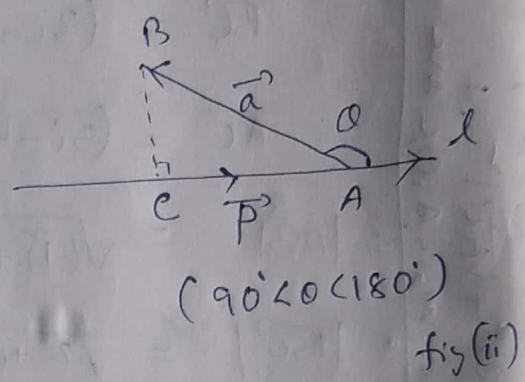 B
a⃗
θ
l
C
p⃗
A
(90°<θ<180°)
fig(ii)